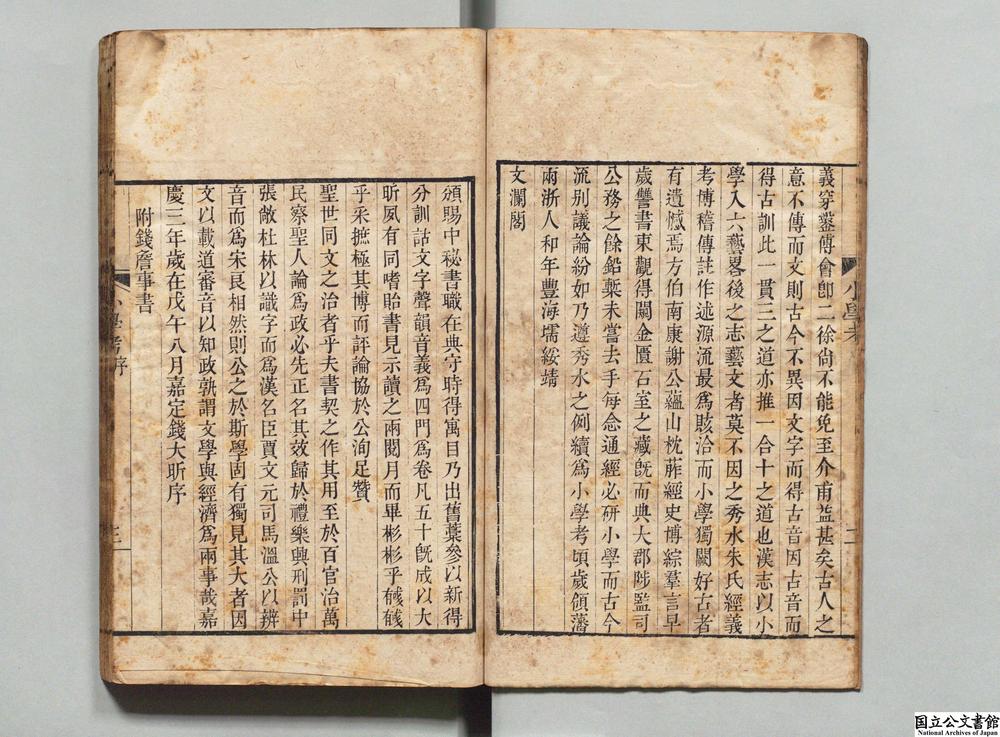 義穿鑿傅會卽二徐尙不能免至介甫益甚矣古人之
意不傳而文則古今不異因文字而得古音因古音而
得古訓此一貫三之道亦推一合十之道也漢志以小
學入六藝畧後之志藝文者莫不因之秀水朱氏經義
考博稽傳註作述源流最爲賅洽而小學獨闕好古者
有遺憾焉方伯南康謝公蘊山枕葄經史博綜羣言早
歲讐書東觀得闚金匱石室之藏旣而典大郡陟監司
公務之餘鉛槧未嘗去手每念通經必研小學而古今
流别議論紛如乃遵秀水之例續爲小學考頃歲領藩
兩浙人和年豐海壖綏靖
文瀾閣
小學考
二
頒賜中秘書職在典守時得寓目乃出舊藁參以新得
分訓詁文字聲韻音義爲四門爲卷凡五十旣成以大
昕夙有同嗜貽書見示讀之兩閱月而畢彬彬乎彧彧
乎采摭極其博而評論協於公洵足贊
聖世同文之治者乎夫書契之作其用至於百官治萬
民察聖人論爲政必先正名其效歸於禮樂興刑罰中
張敞杜林以識字而爲漢名臣賈文元司馬溫公以辨
音而爲宋良相然則公之於斯學固有獨見其大者因
文以載道審音以知政孰謂文學與經濟爲兩事哉嘉
慶三年歲在戊午八月嘉定錢大昕序
附錢詹事書
小學考序
三
国立公文書館
National Archives of Japan